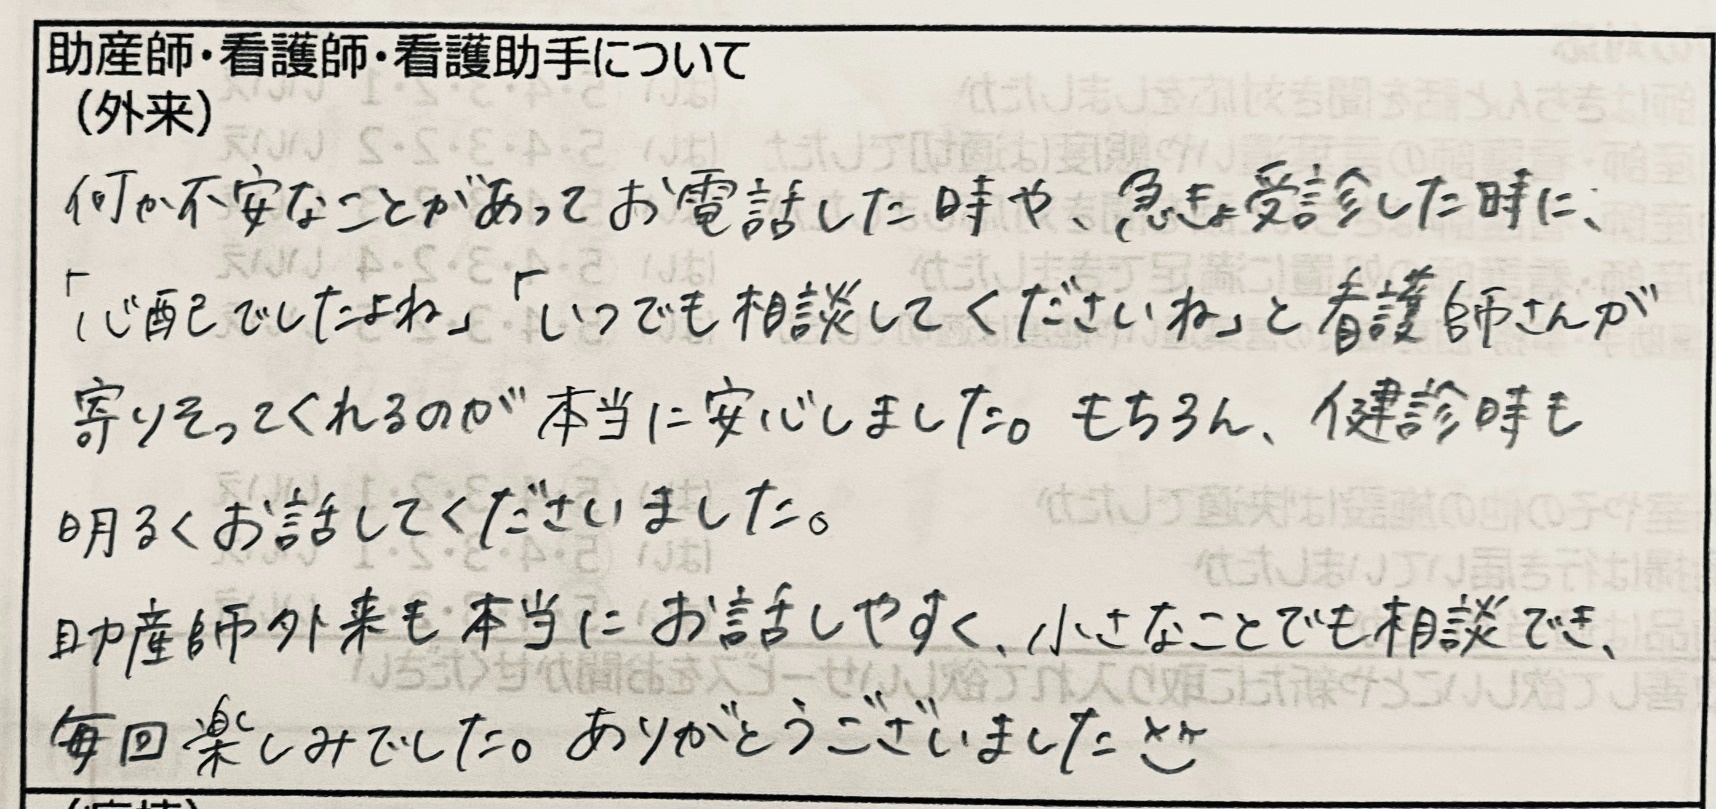 助産師・看護師・看護助手について
（外来）
何か不安なことがあってお電話した時や、急きょ受診した時に、
「心配でしたよね」「いつでも相談してくださいね」と看護師さんが
寄りそってくれるのが本当に安心しました。もちろん、健診時も
明るくお話してくださいました。
助産師外来も本当にお話しやすく、小さなことでも相談でき、
毎回楽しみでした。ありがとうございました